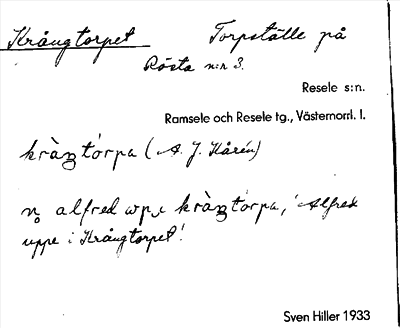 Krångtorpet Torpställe på
Rösta n:r 3.
Resele s:n.
Ramsele och Resele tg., Västernorrl. l.
kràŋtórpa (A. J. Kårén)
n̥ alfred upı kràŋtórpa, 'Alfred
uppe i Krångtorpet'
Sven Hiller 1933